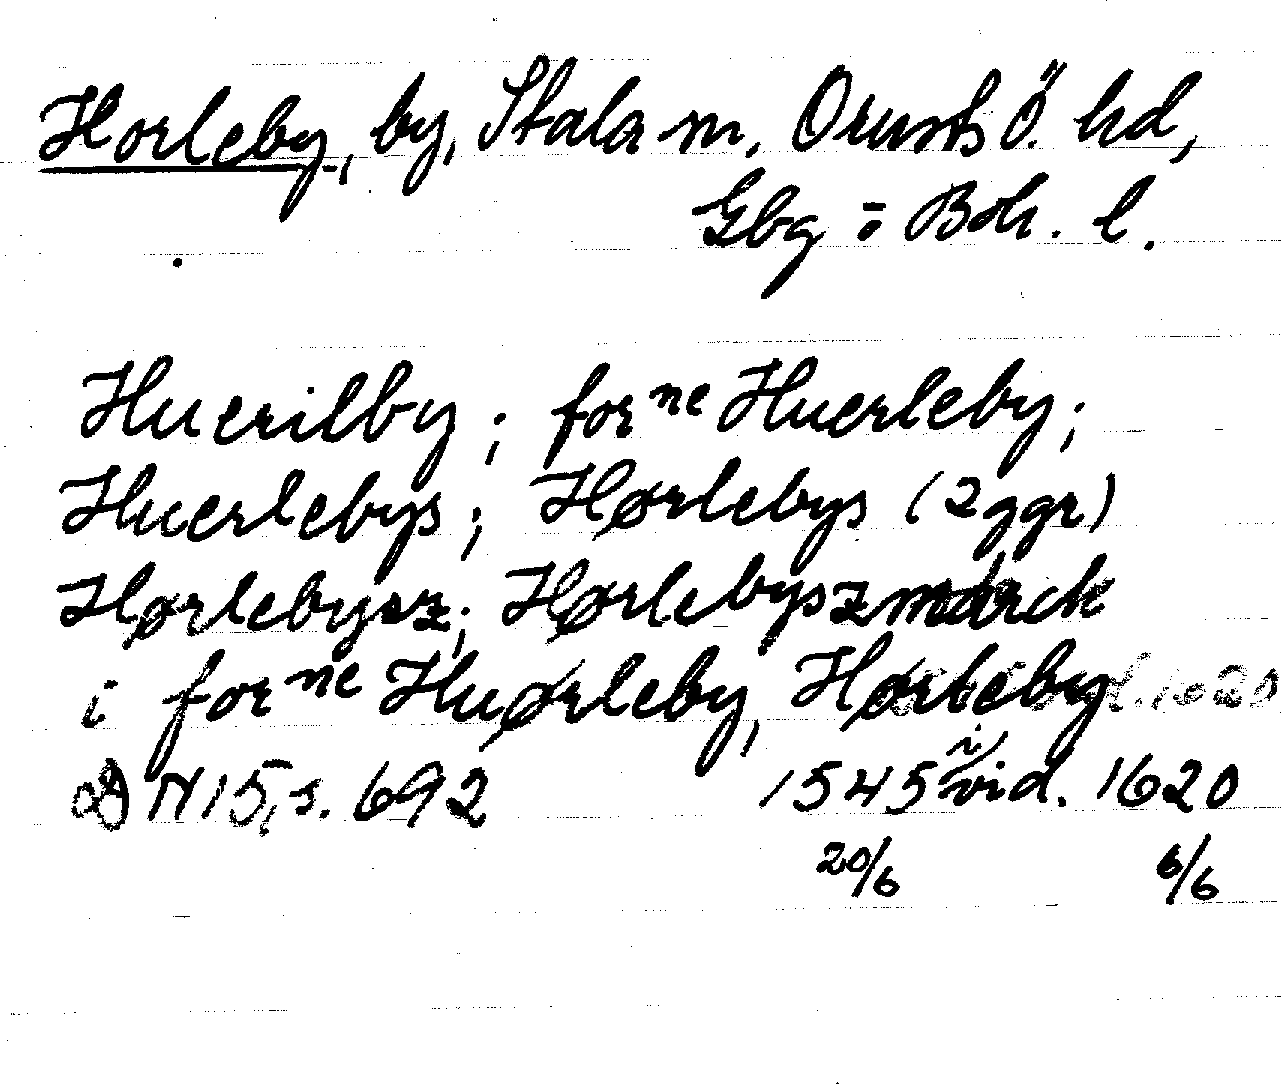 Horleby, by, Stala sn, Orusts Ö. hd,
Gbg o Boh. l.
Huerilby; forne Huerleby;
Huerlebys; Hørlebys (2 ggr)
Hørlebysz; Hørlebyszmarck
i forne Huørleby, Hørleby
DN 15, s. 692 1545 i vid. 1620
20/6 6/6